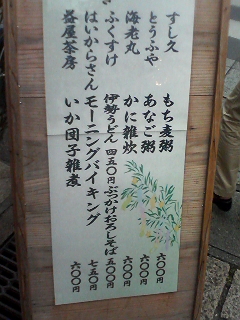 すし久 もち麦粥 六〇〇円
とうふや あなご粥 六〇〇円
海老丸 かに雑炊 六〇〇円
ふくすけ 伊勢うどん 四五〇円 ぶっかけおろしそば 五〇〇円
はいからさん モーニングバイキング 七五〇円
益屋茶房 いか団子雑煮 六〇〇円